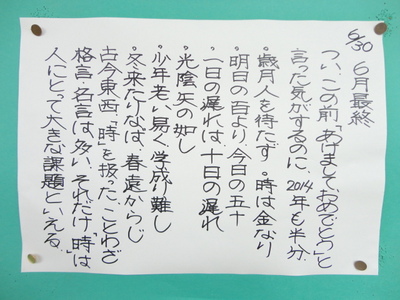 6/30 6月最終
つい、この前「あけまして、おめでとう」と
言った気がするのに、2014年も半分。
・歳月人を待たず ・時は金なり
・明日の百より、今日の五十
・一日の遅れは、十日の遅れ
・光陰矢の如し
・少年老い易く、学成り難し
・冬来たりなば、春遠からじ
古今東西「時」を扱った、ことわざ
格言・名言は、多い。それだけ「時」は
人にとって大きな課題といえる。